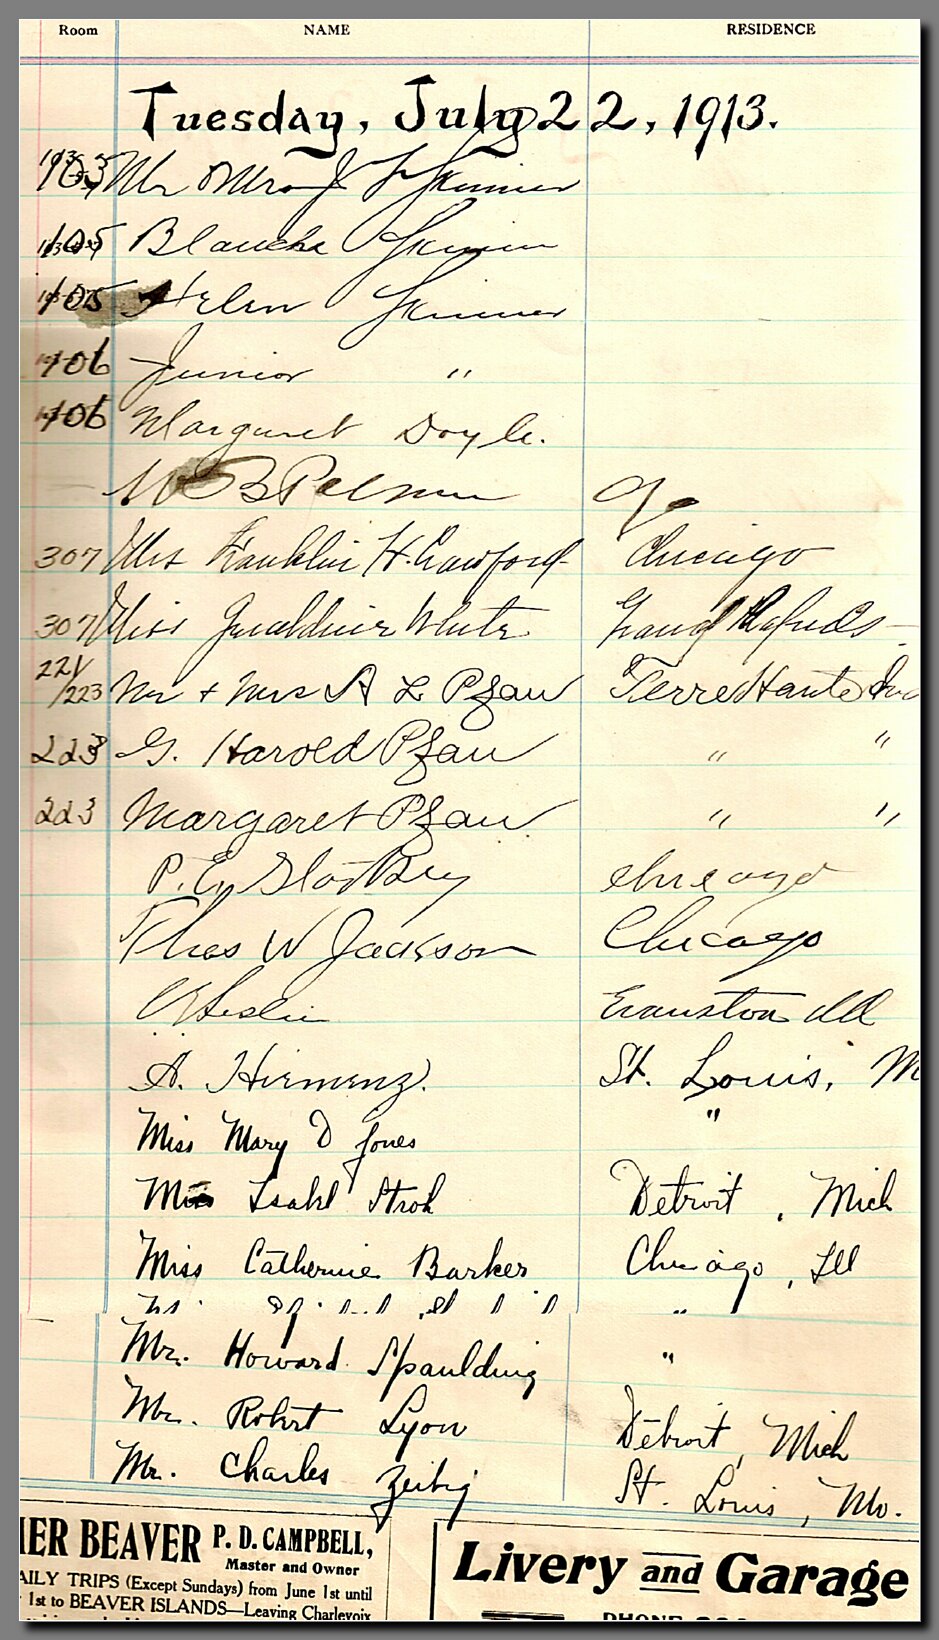 Room NAME RESIDENCE
Tuesday, July 22, 1913.
103 Mr & Mrs J F Skinner
105 Blanche Skinner
105 Helen Skinner
106 Junior "
106 Margaret Doyle.
B
307 Mrs Franklin H. Crawford Chicago
307 Miss Geraldine White Grand Rapids
221/223 Mr + Mrs A L Pfau Terre Haute Ind
223 G. Harold Pfau " "
223 Margaret Pfau " "
P. Chicago
Thos W Jackson Chicago
Leslie Evanston Ill
A. Hiemenz. St. Louis, M
Miss Mary D Jones "
Miss Isabel Stroh Detroit, Mich
Miss Catherine Barker Chicago, Ill
"
Mr. Howard Spaulding "
Mr. Robert Lyon Detroit, Mich
Mr. Charles Zeibig St. Louis, Mo.
IER BEAVER P. D. CAMPBELL,
Master and Owner
AILY TRIPS (Except Sundays) from June 1st until
1st to BEAVER ISLANDS—Leaving Charlevoix
Livery and Garage
PHONE